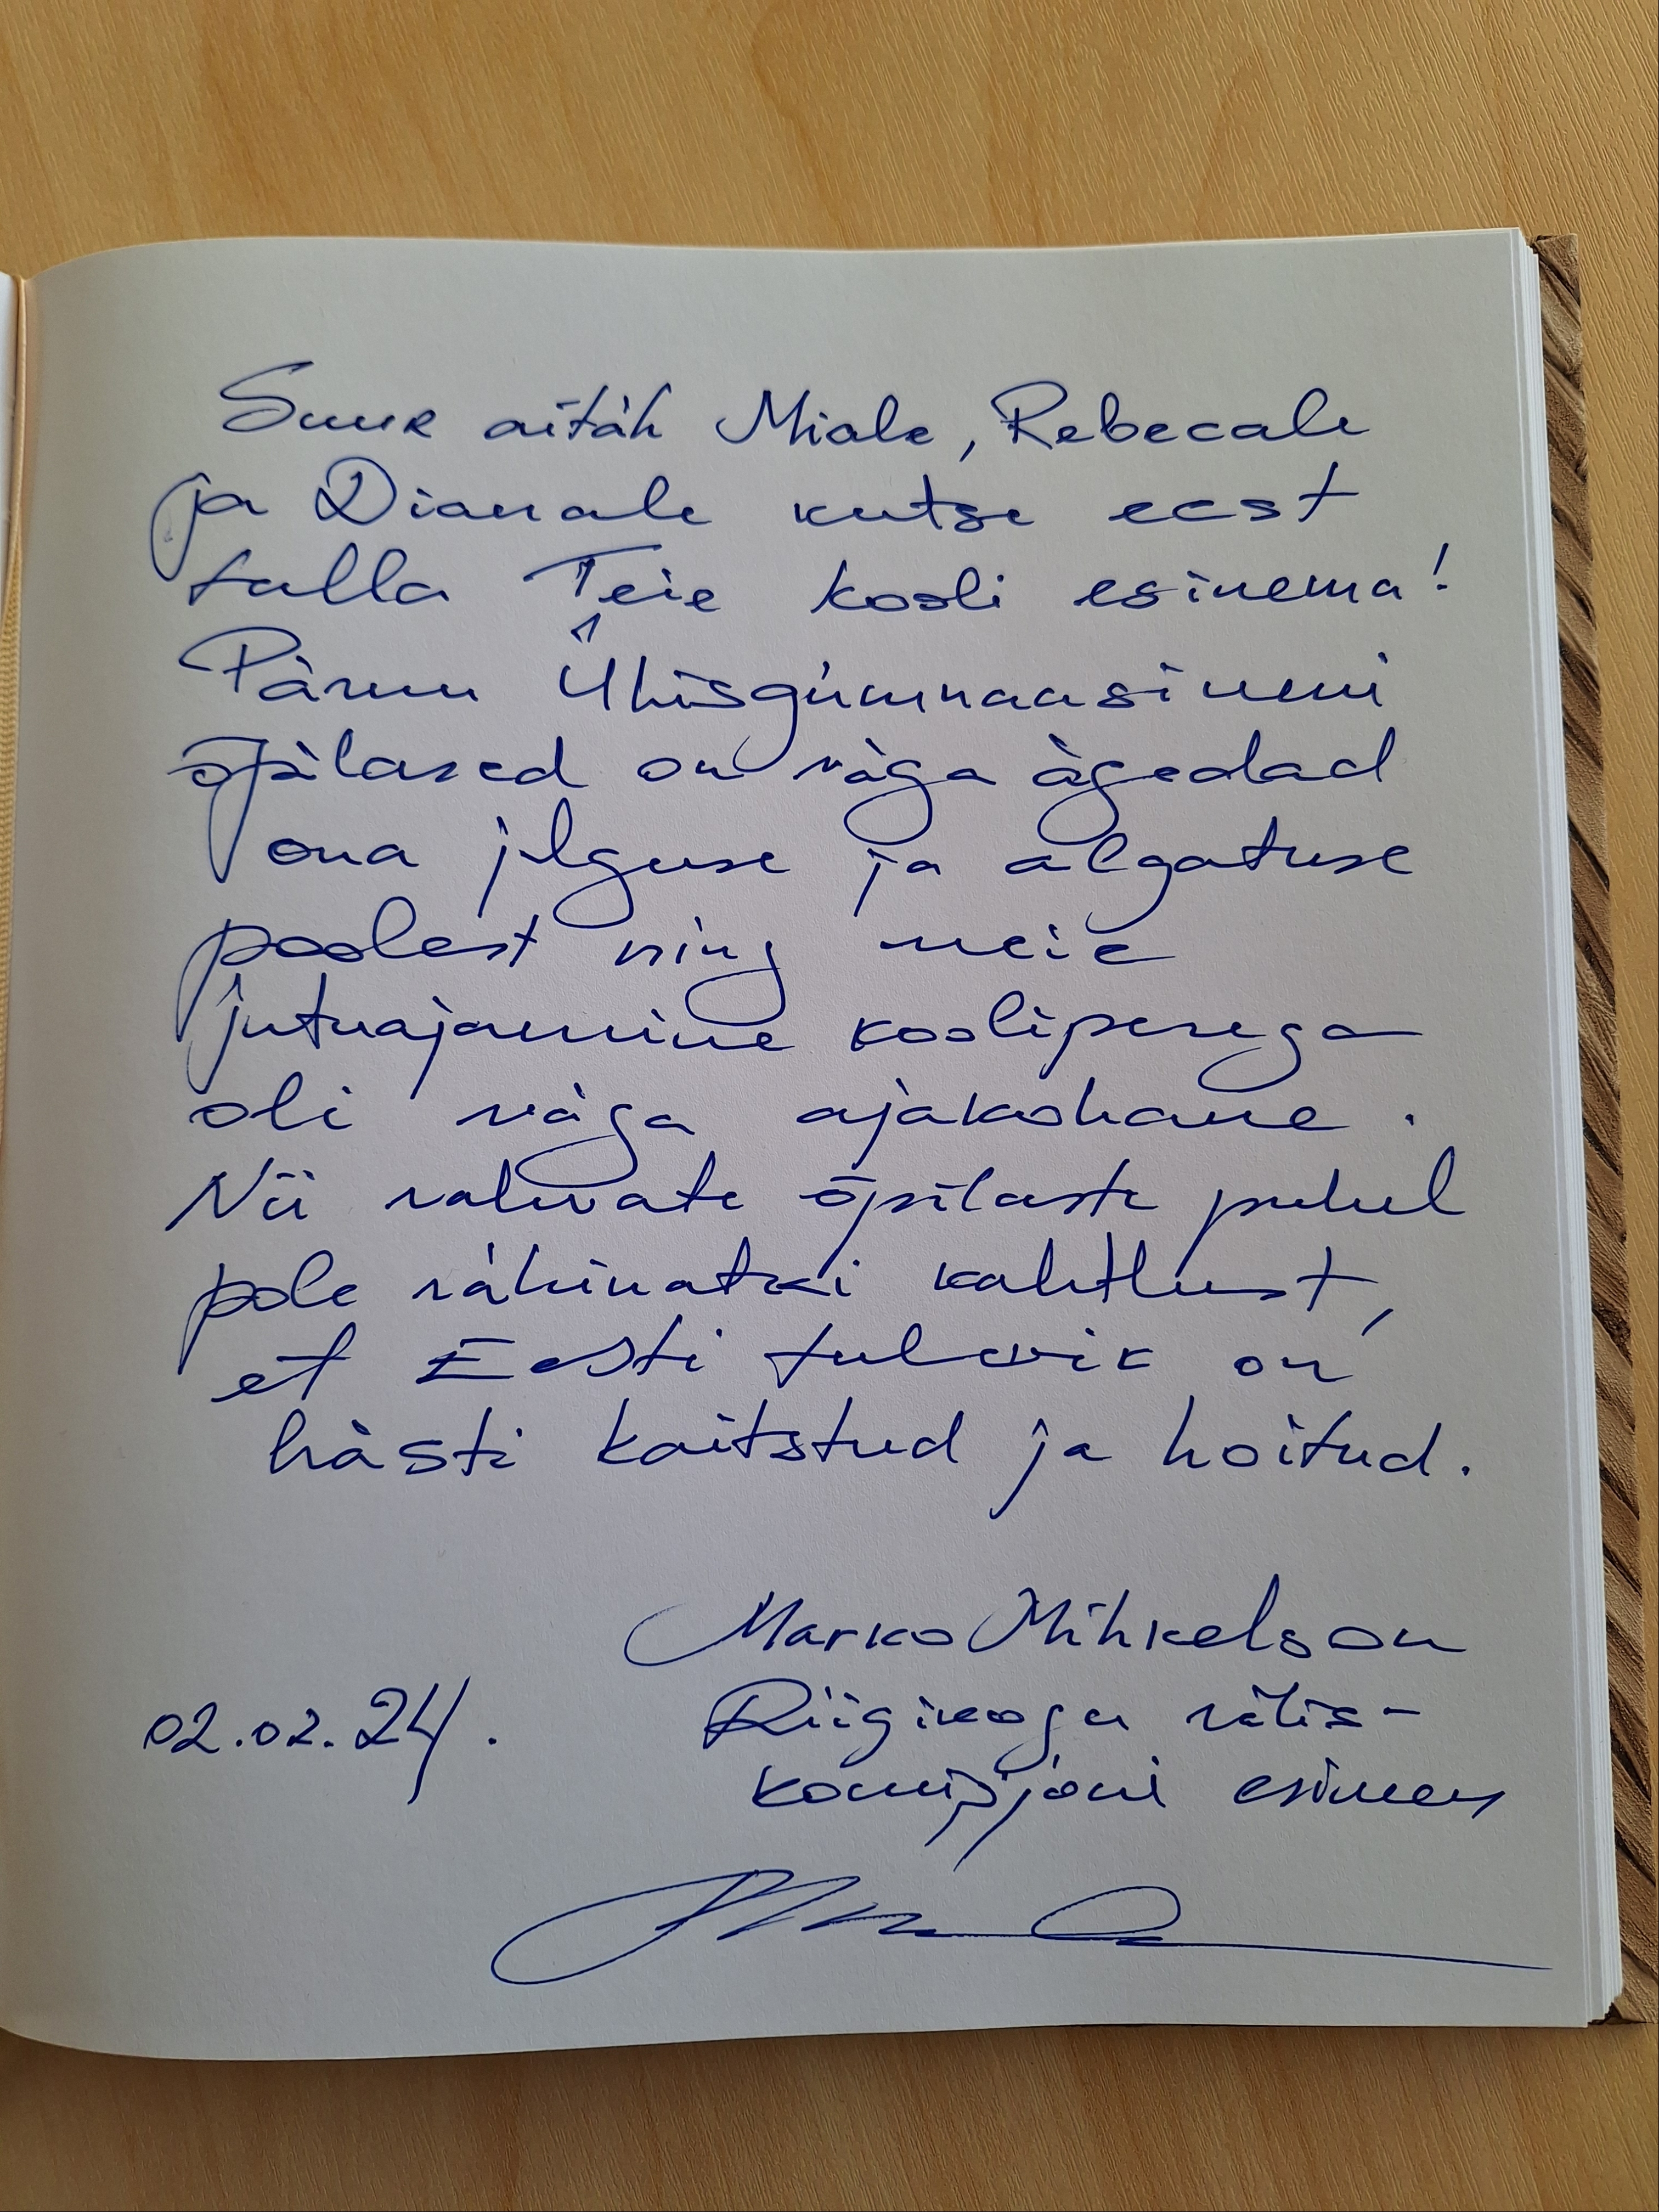 Suur aitäh Miale, Rebecale
ja Dianale kutse eest
tulla Teie kooli esinema!
Pärnu Ühisgümnaasiumi
õpilased on väga ägedad
oma julguse ja algatuse
poolest ning meie
jutuajamine kooliperega
oli väga ajakohane.
Nii vahvate õpilaste puhul
pole vähimatki kahtlust,
et Eesti tulevik on
hästi kaitstud ja hoitud.
Marko Mihkelson
02.02.24. Riigikogu välis-
komisjoni esimees